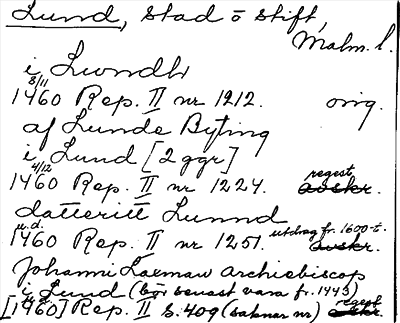 Lund, stad o stift,
Malm. l.
i Lwndh
8/11
1460 Rep. II nr 1212. orig.
af Lunde Byting
i Lund [2 ggr]
4/12 regest
1460 Rep. II nr 1224. avskr.
datteritt Lunnd
u.d. utdrag fr. 1600-t.
1460 Rep. II nr 1251. avskr.
Johanni Laxman Archiebiscop
i Lund (bör senast vara fr. 1443)
regest
[1460] Rep. II s. 409 (saknar nr) avskr.